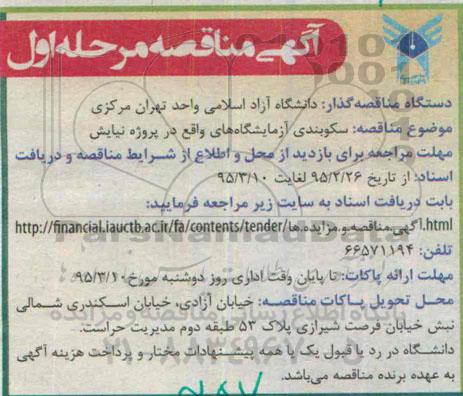 آگهی مناقصه مرحله اول
دستگاه مناقصه‌گذار: دانشگاه آزاد اسلامی واحد تهران مرکزی
موضوع مناقصه: سکوبندی آزمایشگاه‌های واقع در پروژه نیایش
مهلت مراجعه برای بازدید از محل و اطلاع از شرایط مناقصه و دریافت
اسناد: از تاریخ ۹۵/۲/۲۶ لغایت ۹۵/۳/۱۰
بابت دریافت اسناد به سایت زیر مراجعه فرمایید:
http://financial.iauctb.ac.ir/fa/contents/tender/آگهی.مناقصه.و.مزایده.ها.html
تلفن: ۶۶۵۷۱۱۹۴
مهلت ارائه پاکات: تا پایان وقت اداری روز دوشنبه مورخ ۹۵/۳/۱۰
محل تحویل پاکات مناقصه: خیابان آزادی، خیابان اسکندری شمالی
نبش خیابان فرصت شیرازی پلاک ۵۳ طبقه دوم مدیریت حراست.
دانشگاه در رد یا قبول یک یا همه پیشنهادات مختار و پرداخت هزینه آگهی
به عهده برنده مناقصه می‌باشد.
ParsNamadData
پایگاه اطلاع رسانی مناقصه و مزایده